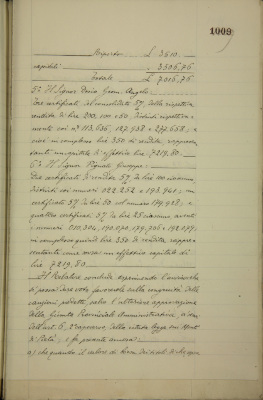 1009
Riporto £ 3510.
capitali " 3506,76
Totale £ 7016,76
5º Il Signor Angelo
Tre certificati al consolidato 5% della rispettiva
rendita di lire 200, 100 e 50 distinti rispettiva=
mente coi nⁱ 113.686, 127.968 e 277.658, e
così in complesso lire 350 di rendita, rappresen
tanti un capitale di effettive lire 7219,80.
6º Il Signor Vignali Giuseppe:
Due certificati di rendita 5% di lire 100 ciascuno
distinti coi numeri 022.252 e 193.941; un
certificato 5% di lire 50 col numero 179.928; e
quattro certificati 5% di lire 25 ciascuno aventi
i numeri 030,304, 190.070, 179,796 e 192.077;
in complesso quindi lire 350 di rendita rappre=
sentanti come sopra un effettivo capitale di
lire 7219,80.
Il Relatore conclude esprimendo l'avviso che
si possa dare voto favorevole sulla congruità delle
cauzioni predette, salva l'ulteriore approvazione
della Giunta Provinciale Amministrativa, a' sen=
si dell'art. 5, 2º capoverso, della citata legge sui Monti
di Pietà; e fa presente ancora:
a) che quantunque il valore